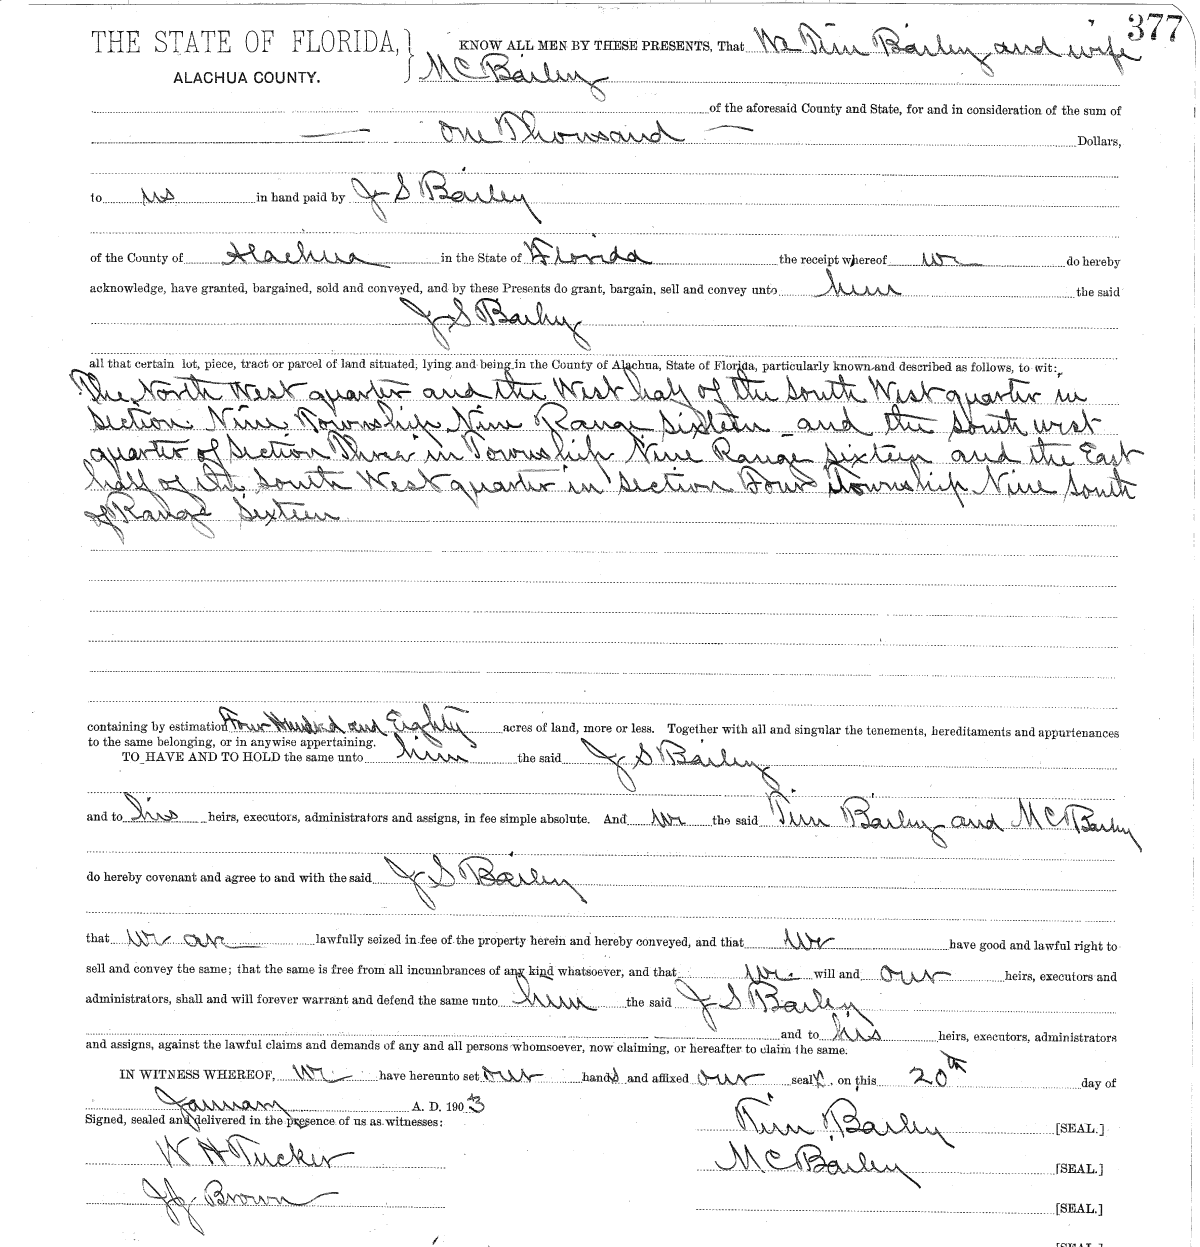 377
THE STATE OF FLORIDA, KNOW ALL MEN BY THESE PRESENTS, That We Tim Bailey and wife
ALACHUA COUNTY. M C Bailey
of the aforesaid County and State, for and in consideration of the sum of
One Thousand Dollars,
to us in hand paid by J S Bailey
of the County of Alachua in the State of Florida the receipt whereof we do hereby
acknowledge, have granted, bargained, sold and conveyed, and by these Presents do grant, bargain, sell and convey unto him the said
J S Bailey
all that certain lot, piece, tract or parcel of land situated, lying and being in the County of Alachua, State of Florida, particularly known and described as follows, to wit:
The North West quarter and the West half of the South West quarter in
Section Nine Township Nine Range Sixteen and the South west
quarter of Section Three in Township Nine Range Sixteen and the East
half of the South West quarter in Section Four Township Nine South
of Range Sixteen
containing by estimation Four Hundred and Eighty acres of land, more or less. Together with all and singular the tenements, hereditaments and appurtenances
to the same belonging, or in anywise appertaining.
TO HAVE AND TO HOLD the same unto him the said J S Bailey
and to his heirs, executors, administrators and assigns, in fee simple absolute. And we the said Tim Bailey and M C Bailey
do hereby covenant and agree to and with the said J S Bailey
that we are lawfully seized in fee of the property herein and hereby conveyed, and that we have good and lawful right to
sell and convey the same; that the same is free from all incumbrances of any kind whatsoever, and that we will and our heirs, executors and
administrators, shall and will forever warrant and defend the same unto him the said J S Bailey
and to his heirs, executors, administrators
and assigns, against the lawful claims and demands of any and all persons whomsoever, now claiming, or hereafter to claim the same.
IN WITNESS WHEREOF, we have hereunto set our hands and affixed our seals on this 20th day of
January A. D. 1903
Signed, sealed and delivered in the presence of us as witnesses: Tim Bailey [SEAL.]
W H Tucker M C Bailey [SEAL.]
J J Brown [SEAL.]